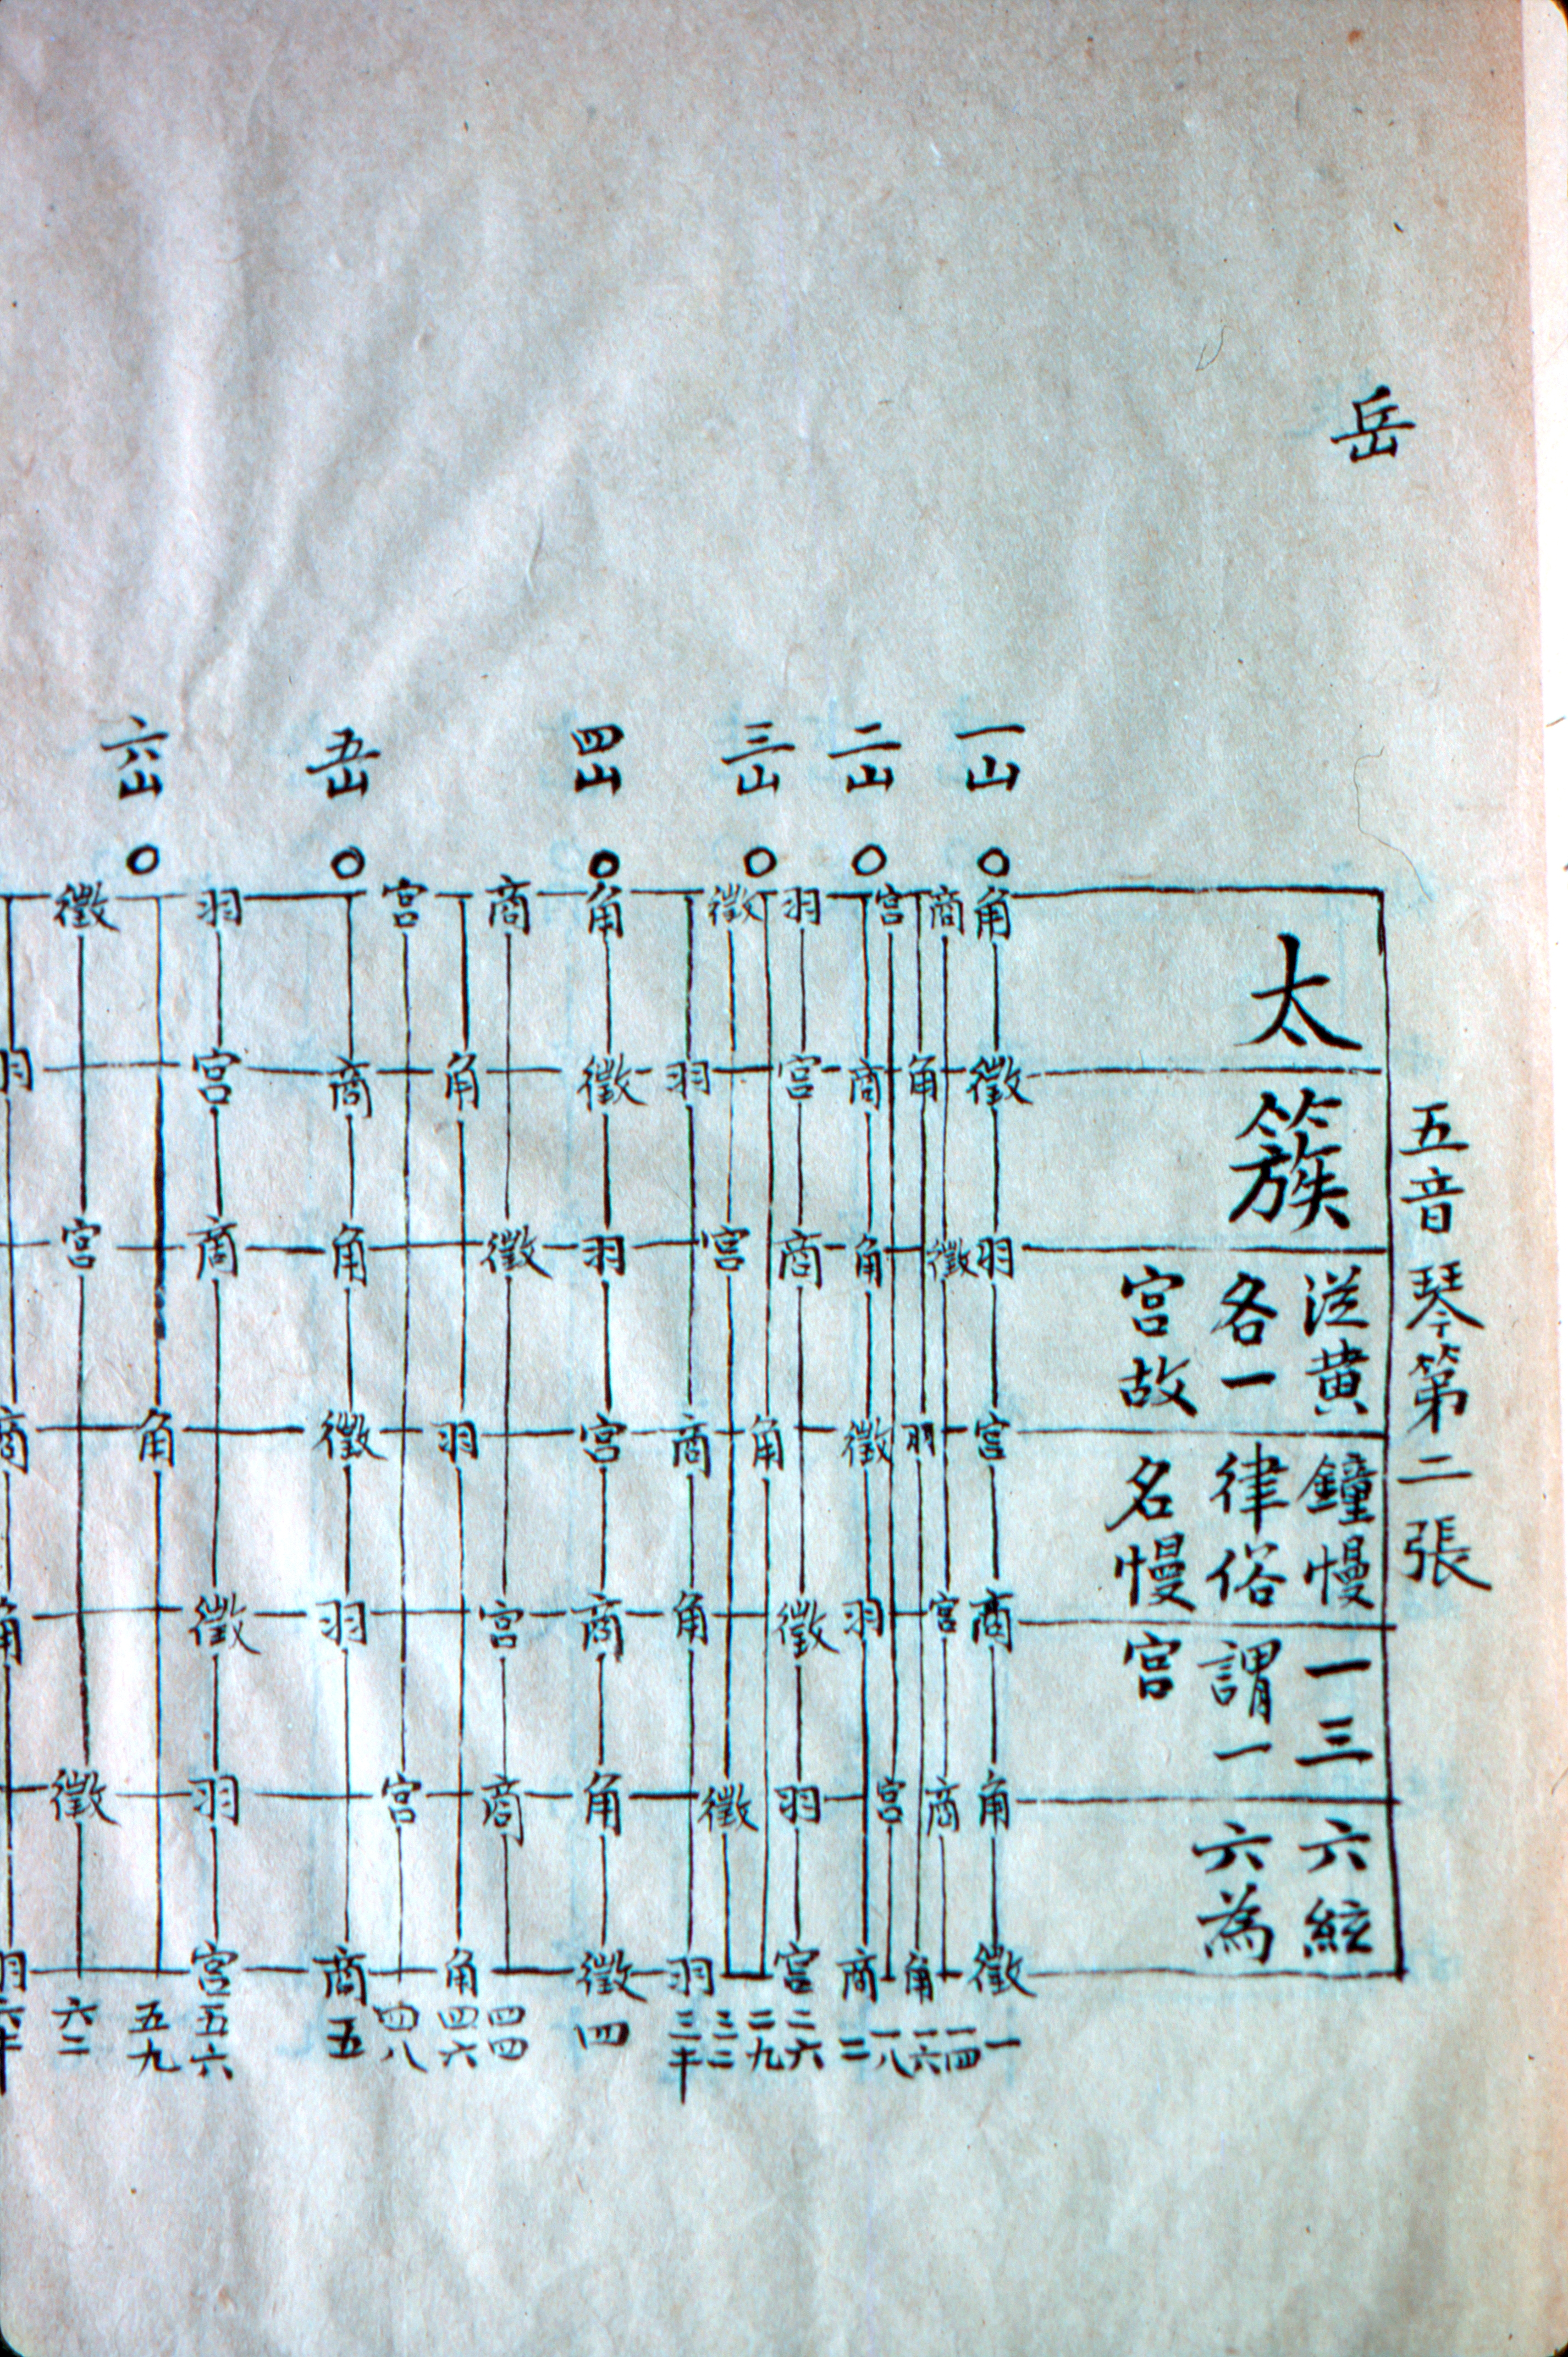 岳
五音琴第二張
太簇
從黄鐘慢一三六絃
各一律俗謂一六為
宮故名慢宮
一山
角徵羽宮商角徵一
商徵宮商一四
角羽角一六
宮宮一八
二山
商角徵羽商二
羽宮商徵羽宮二六
角二九
三山
徵宮徵三二
羽商角羽三半
四山
角徵羽宮商角徵四
商徵宮商四四
角羽角四六
宮宮四八
五山
商角徵羽商五
羽宮商徵羽宮五六
六山
角五九
徵宮徵六二
羽商角羽六半